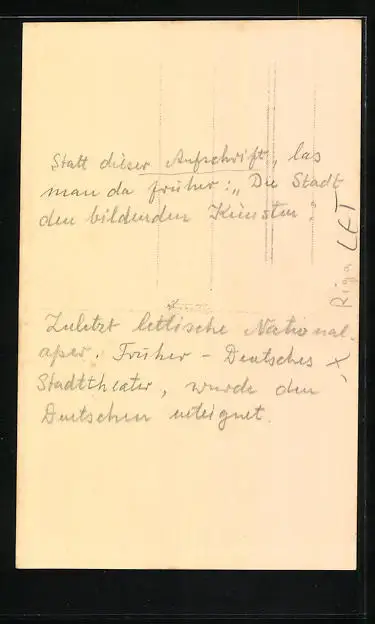 Statt dieser Aufschrift, las
man da früher: „Die Stadt
den bildenden Künsten"
Zuletzt lettische National-
oper. Früher - Deutsches
Stadttheater, wurde den
Deutschen enteignet.
Riga LET